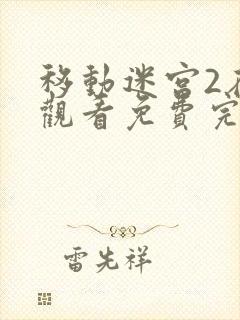 移動迷宮2
觀看免費完
雷先祥